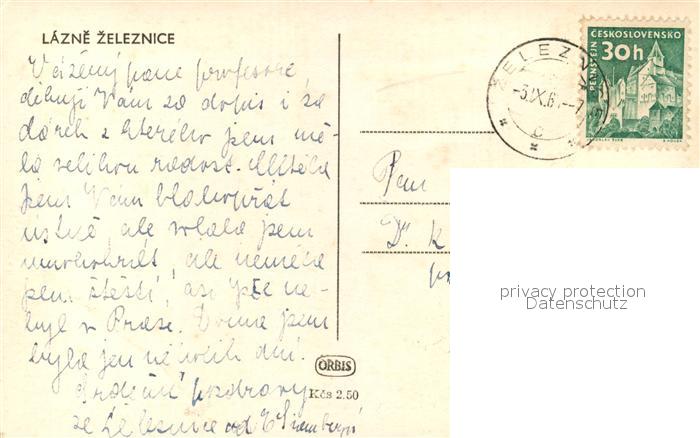 LÁZNĚ ŽELEZNICE
Vážený pane profesore,
děkuji Vám za dopis i za
dárek z kterého jsem mě-
la velikou radost. Chtěla
jsem Vám blahopřát
ústně, ale volala jsem
ale neměla
jsem štěstí, asi jste ne-
byl v Praze. Doma jsem
byla jen několik dní.
Srdečné pozdravy
ze Železnice od
ORBIS
Kčs 2.50
ŽELEZN
-3.IX.6 -7
b
PERNŠTEJN
ČESKOSLOVENSKO
30h
Pan
Dr. K
privacy protection
Datenschutz